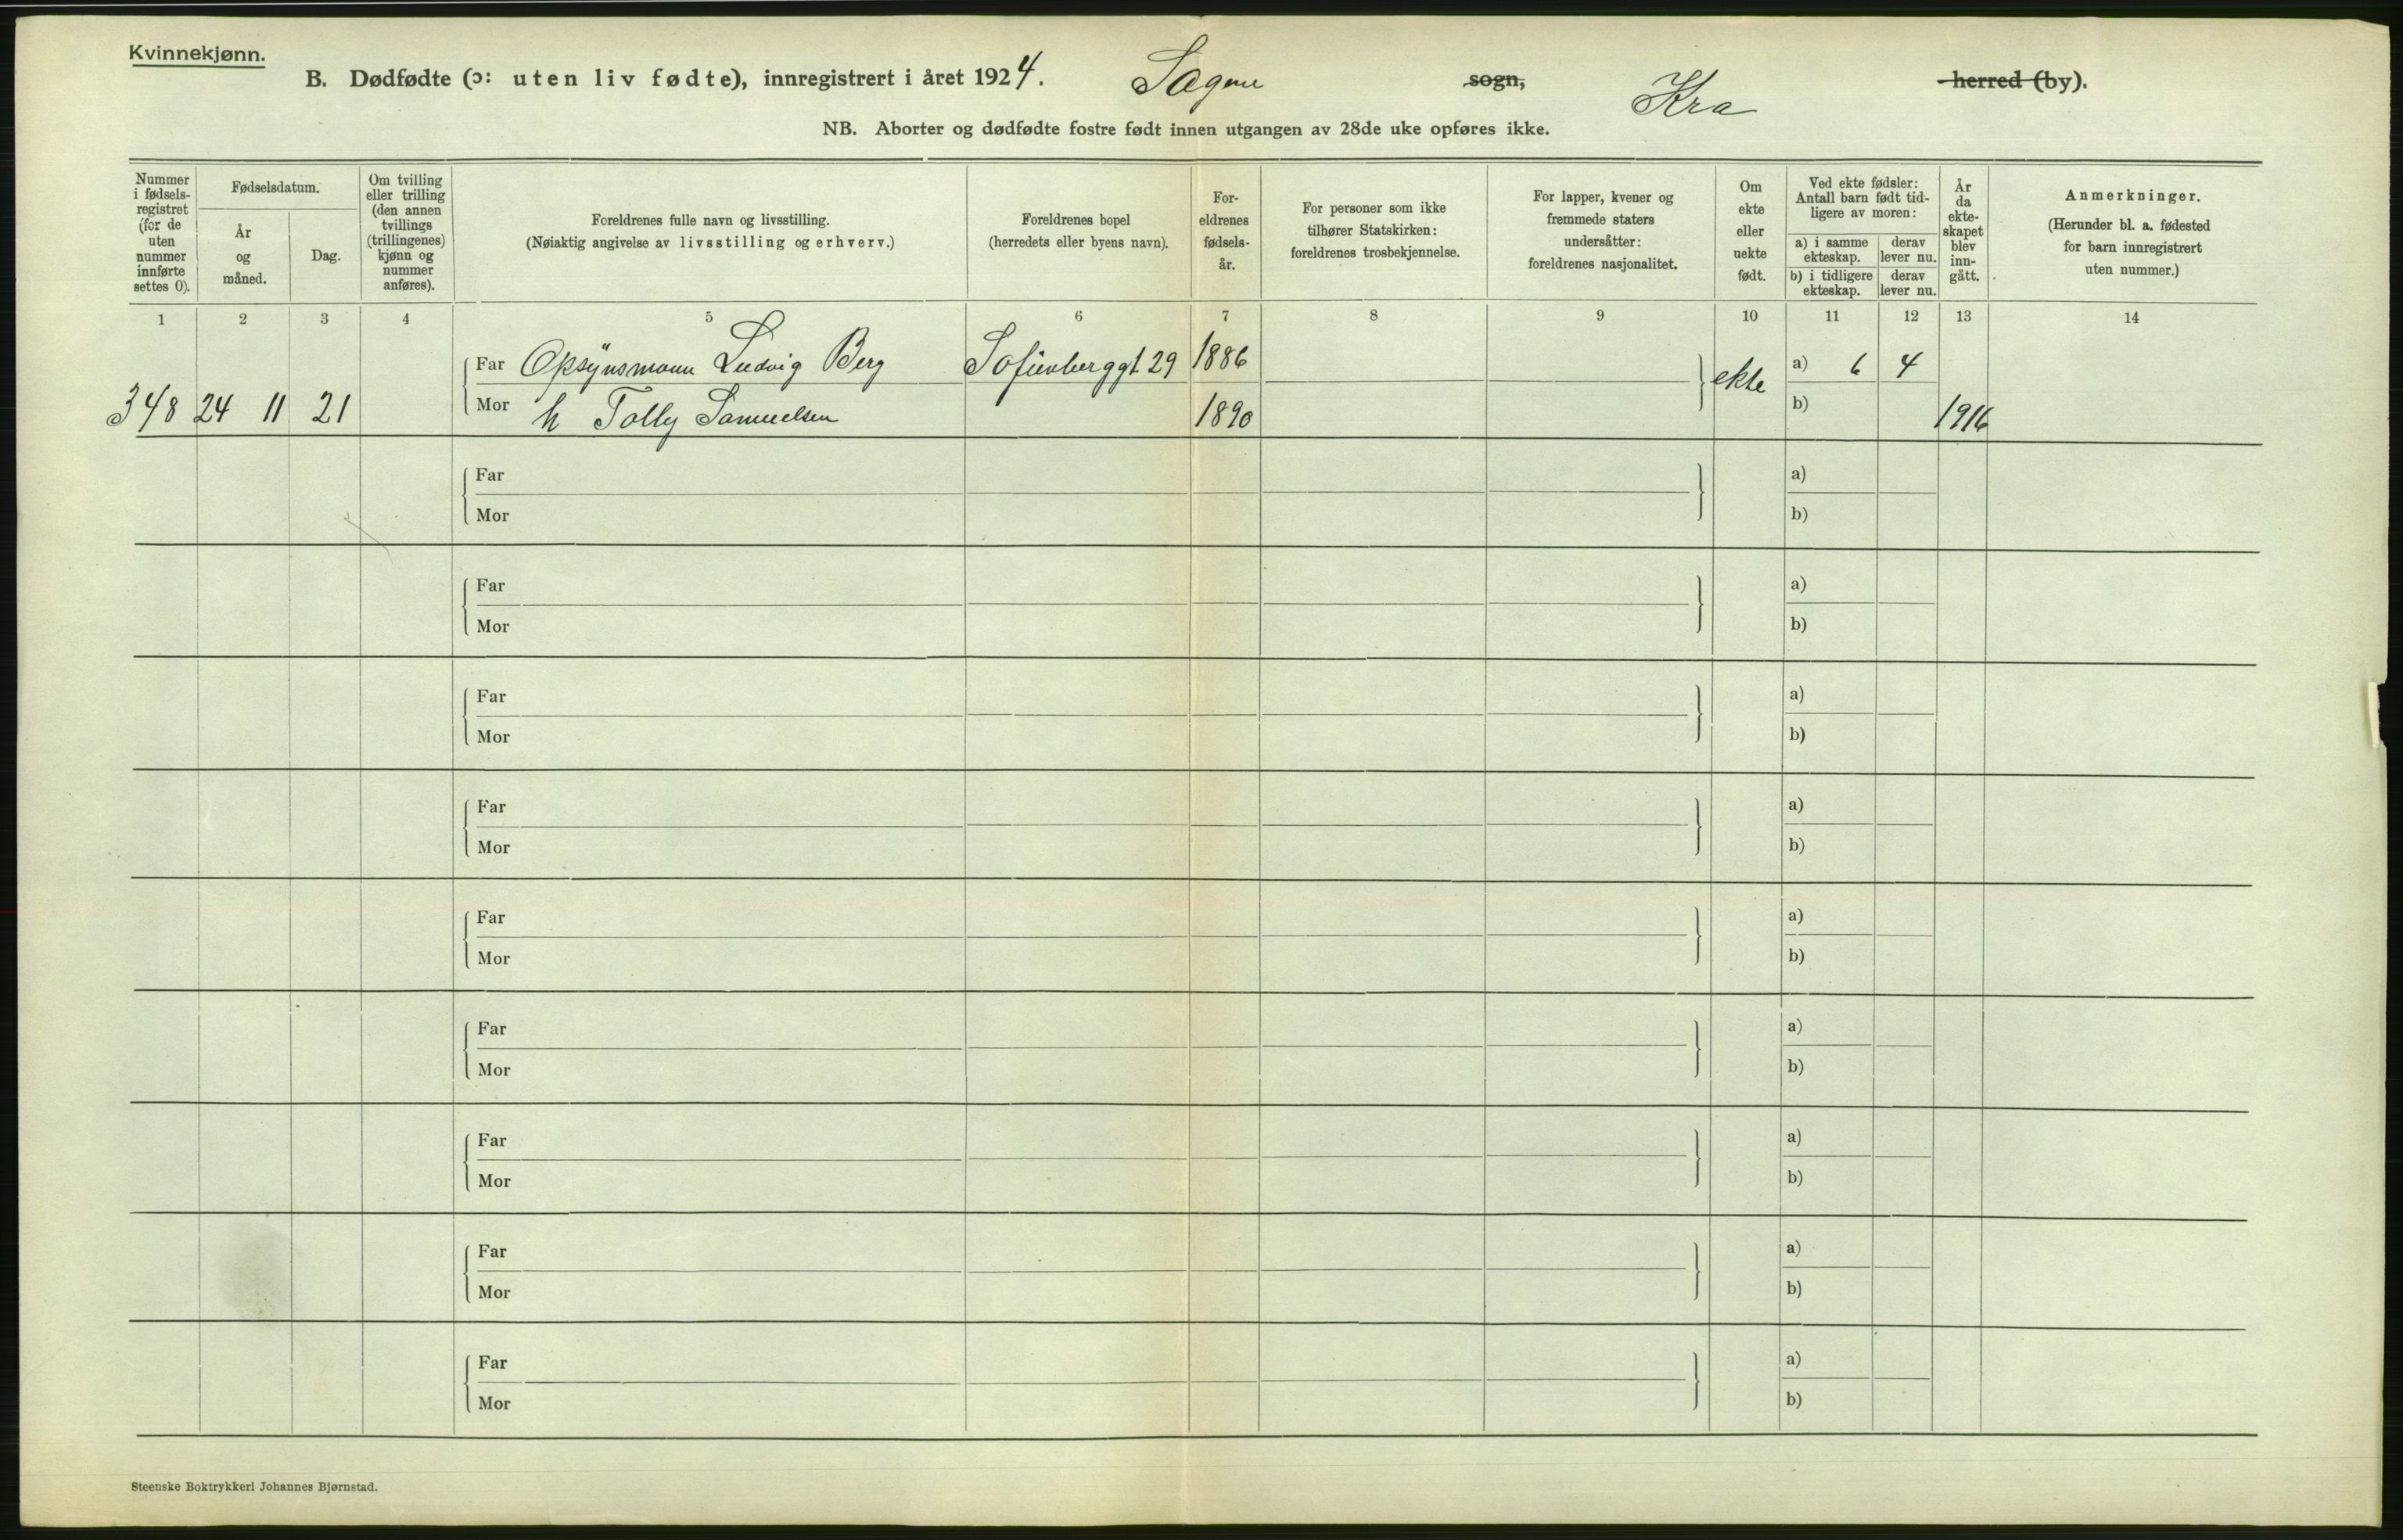 Kvinnekjønn.
B. Dødfødte (ɔ: uten liv fødte), innregistrert i året 1924. Sagene sogn, Kra herred (by).
NB. Aborter og dødfødte fostre født innen utgangen av 28de uke opføres ikke.
Nummer i fødsels-registret (for de uten nummer innførte settes 0).
Fødselsdatum.
År og måned.
Dag.
Om tvilling eller trilling (den annen tvillings (trillingenes) kjønn og nummer anføres).
Foreldrenes fulle navn og livsstilling.
(Nøiaktig angivelse av livsstilling og erhverv.)
Foreldrenes bopel
(herredets eller byens navn).
For-eldrenes fødsels-år.
For personer som ikke tilhører Statskirken: foreldrenes trosbekjennelse.
For lapper, kvener og fremmede staters undersåtter: foreldrenes nasjonalitet.
Om ekte eller uekte født.
Ved ekte fødsler: Antall barn født tid-ligere av moren:
a) i samme ekteskap.
derav lever nu.
b) i tidligere ekteskap.
derav lever nu.
År da ekte-skapet blev inn-gått.
Anmerkninger.
(Herunder bl. a. fødested for barn innregistrert uten nummer.)
1 2 3 4 5 6 7 8 9 10 11 12 13 14
Far Opsynsmann Ludvig Berg Sofienberggt 29 1886 ekte a) 6 4
348 24 11 21 Mor h Tolly Samuelsen 1890 b) 1916
Far a)
Mor b)
Far a)
Mor b)
Far a)
Mor b)
Far a)
Mor b)
Far a)
Mor b)
Far a)
Mor b)
Far a)
Mor b)
Far a)
Mor b)
Far a)
Mor b)
Steenske Boktrykkeri Johannes Bjørnstad.